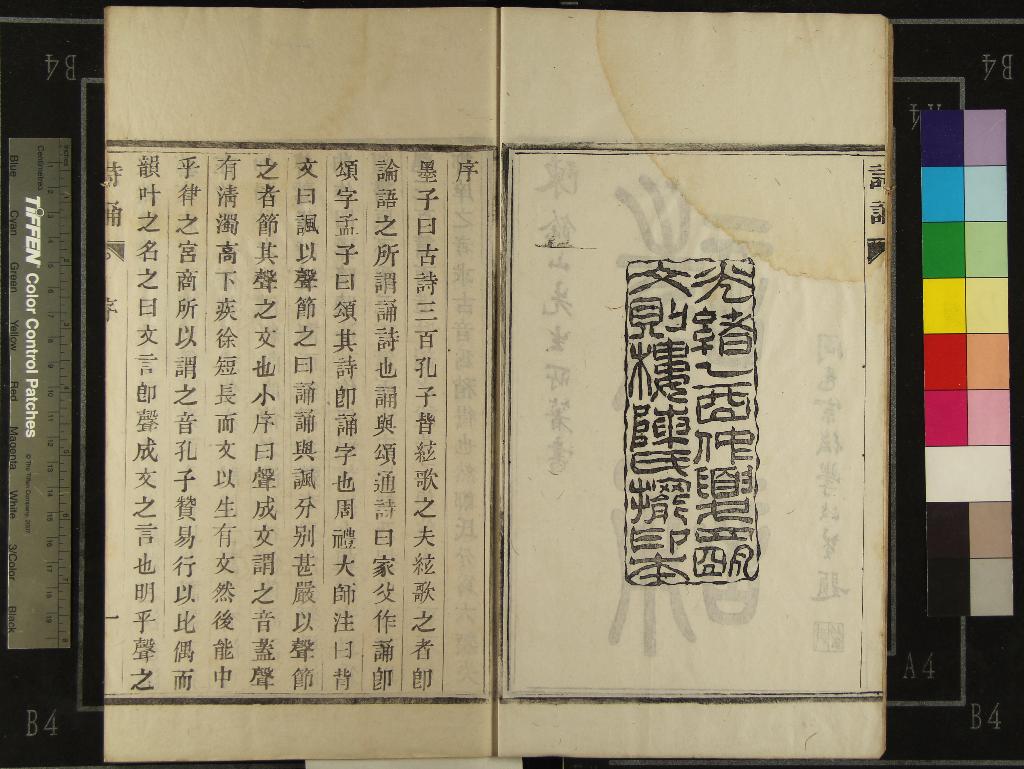 詩誦
光緒乙酉仲
文則樓陳氏擺印本
序
墨子曰古詩三百孔子皆絃歌之夫絃歌之者卽
論語之所謂誦詩也誦與頌通詩曰家父作誦卽
頌字孟子曰頌其詩卽誦字也周禮大師注曰背
文曰諷以聲節之曰誦誦與諷分別甚嚴以聲節
之者節其聲之文也小序曰聲成文謂之音蓋聲
有淸濁高下疾徐短長而文以生有文然後能中
乎律之宮商所以謂之音孔子贊易行以比偶而
韻叶之名之曰文言卽聲成文之言也明乎聲之
詩誦
序
一
B4
B4
B4
B4
A4
A4
Inches
Centimetres
TIFFEN Color Control Patches
© The Tiffen Company, 2007
Blue
Cyan
Green
Yellow
Red
Magenta
White
3/Color
Black